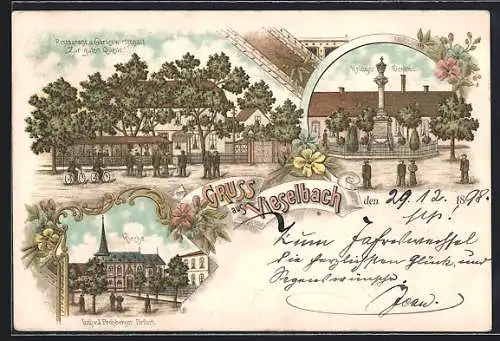 Restaurant u. Gartenwirthschaft
"Zur guten Quelle"
Krieger Denkmal
Gruss
aus Vieselbach
den 29.12. 1898.
Kirche
Zum Jahreswechsel
die herzlichsten Glück- und
Segenswünsche
Jean.